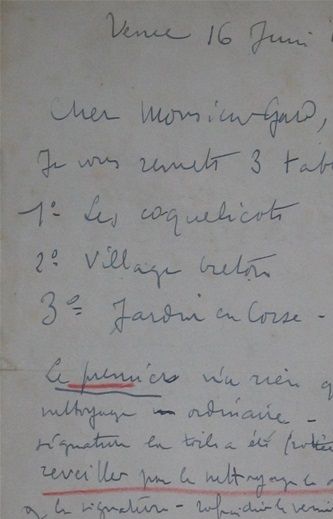 Vence 16 Juin
Cher Monsieur Gard,
Je vous remets 3 tab
1º Les coquelicots
2º Village breton
3º Jardin en Corse -
Le premier n'a rien
nettoyage ordinaire -
signature la toile a été
reveiller par le nettoyage
la signature - refroidir le vernis